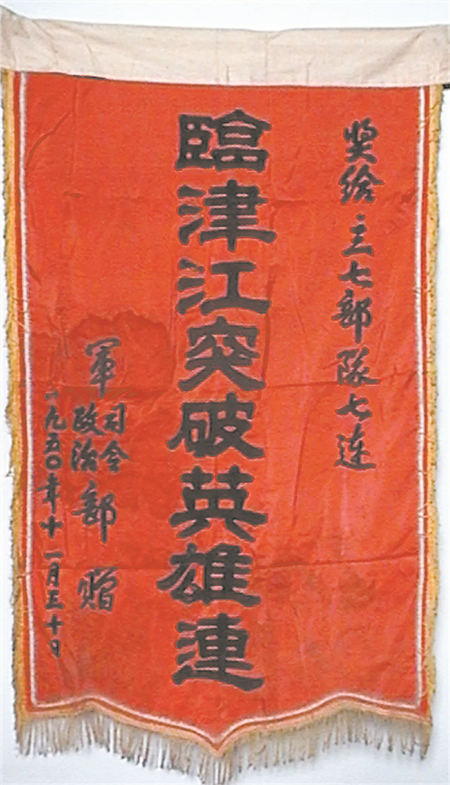 奖给三七部隊七连
臨津江突破英雄連
軍司令政治部赠
一九五〇年十一月三十日